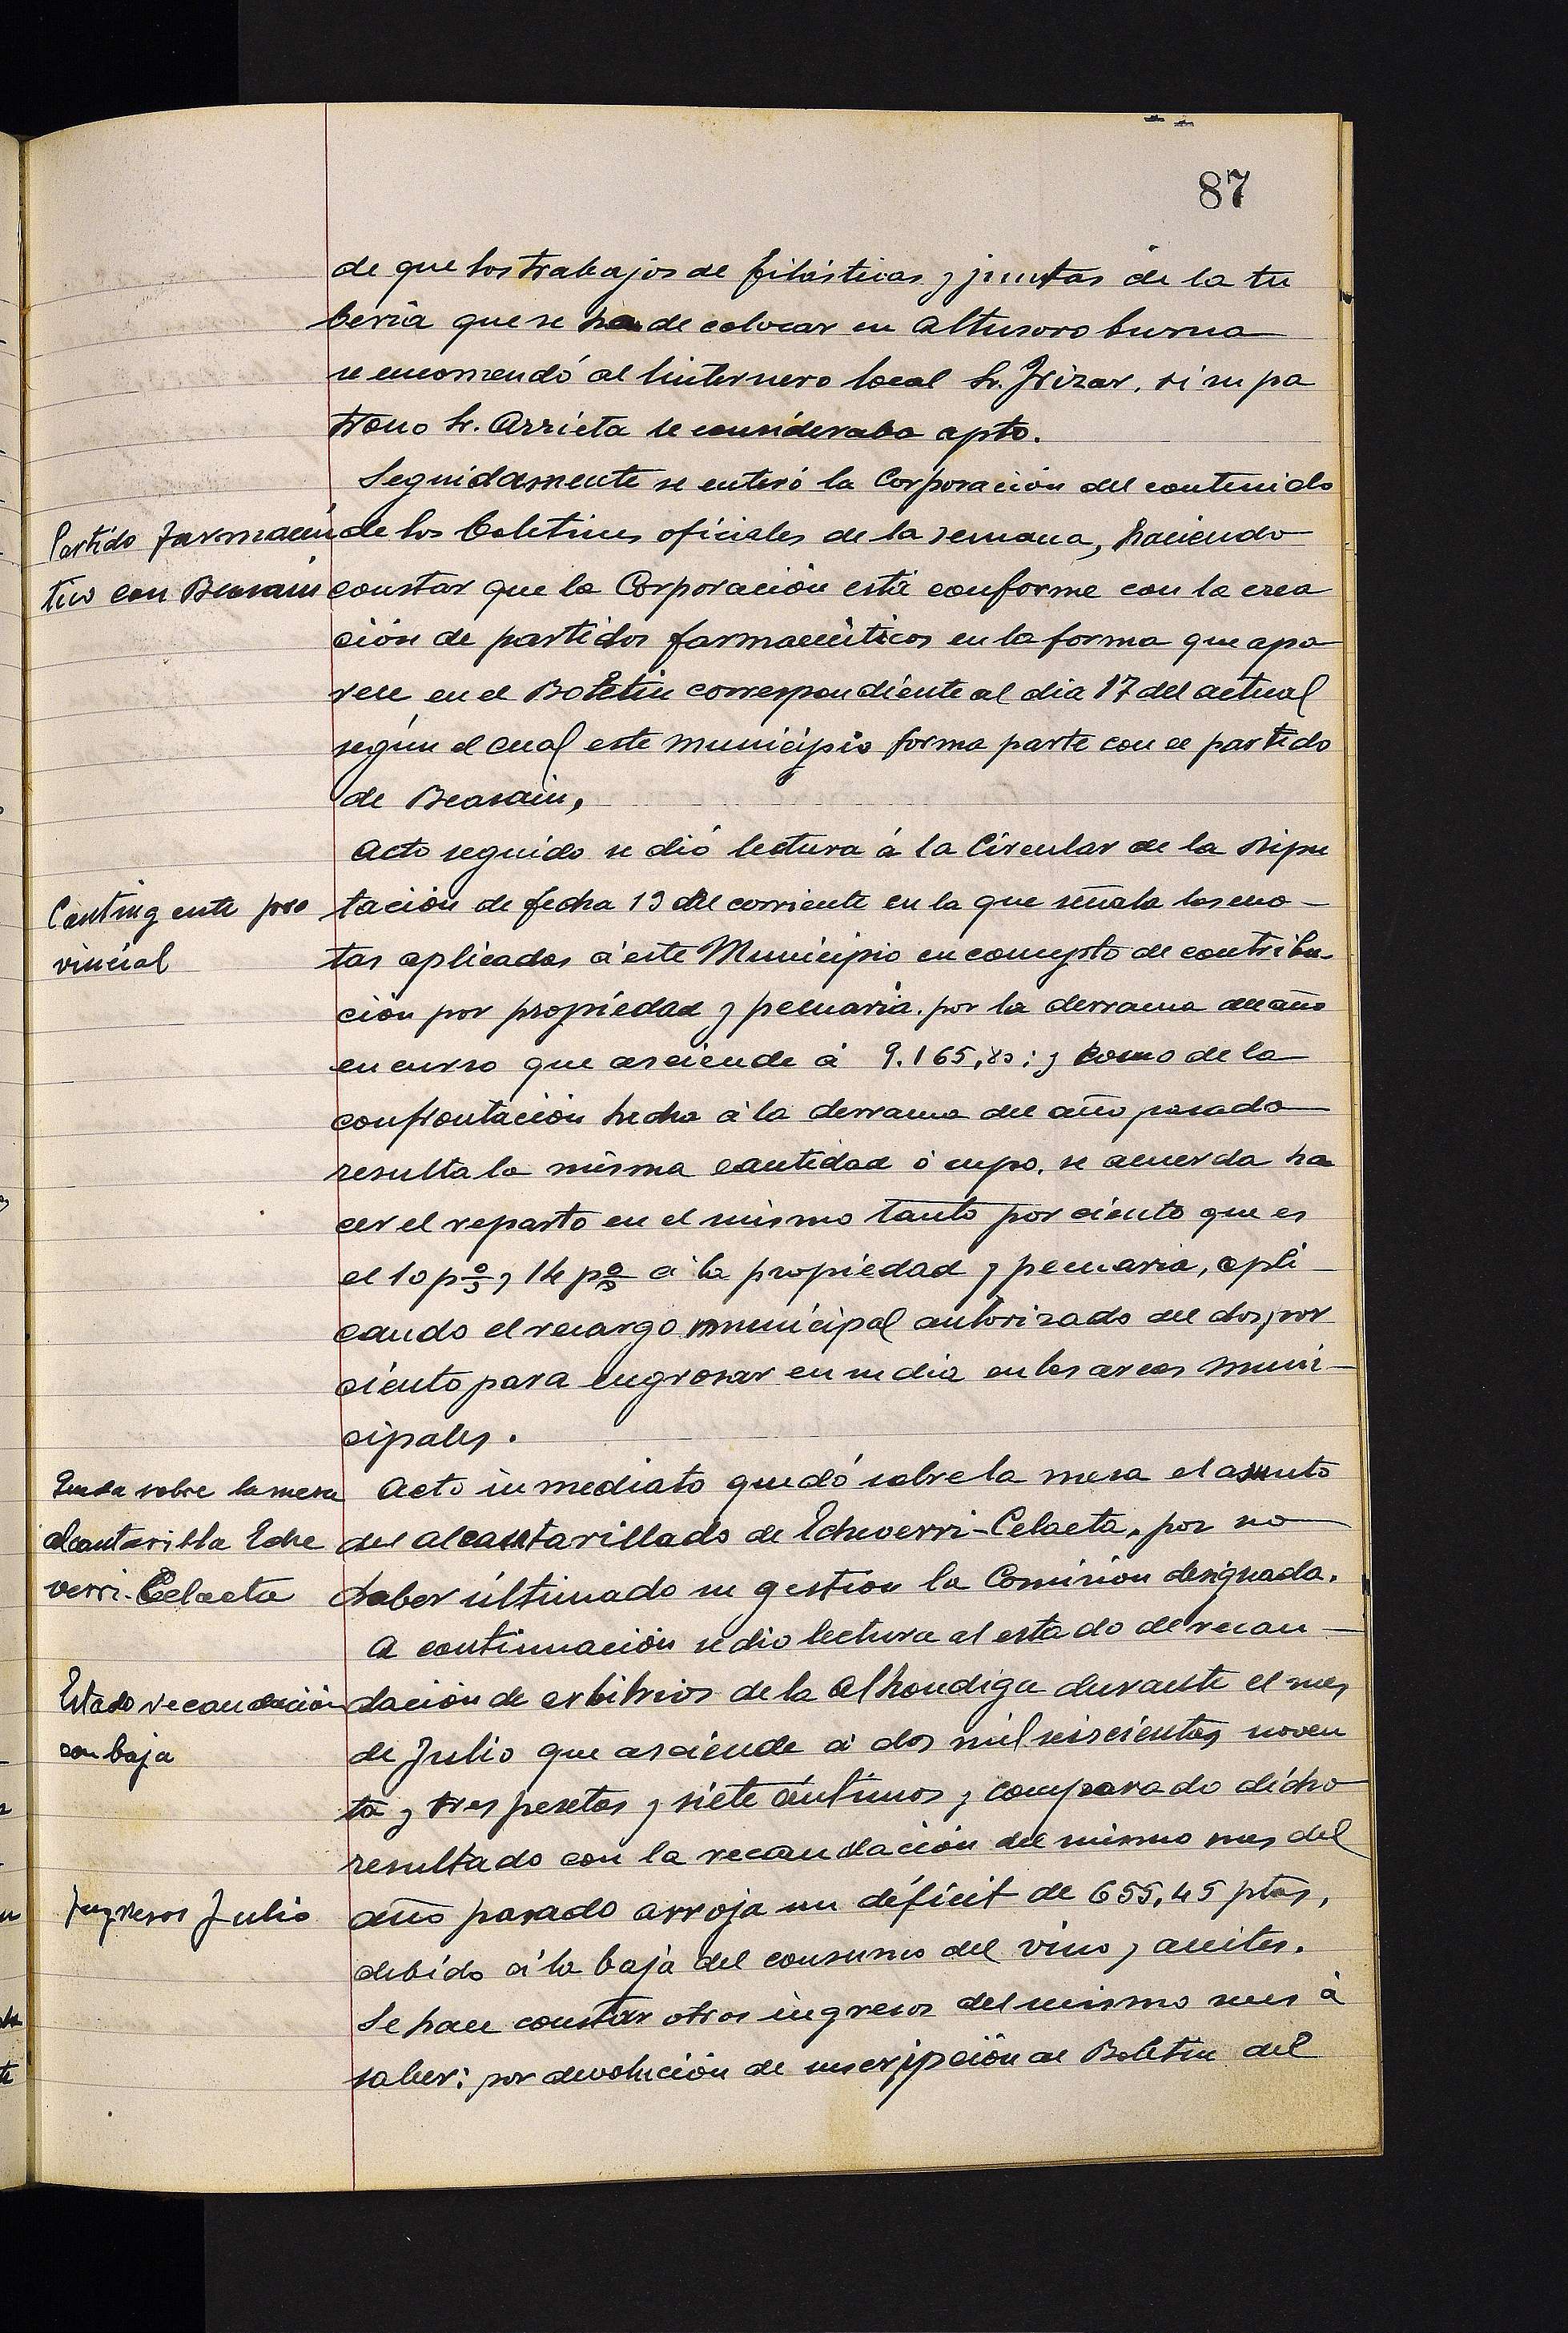 87
de que los trabajos de filásticas y juntas de la tu
bería que se ha de colocar en Altusoroburua
se encomendó al linternero local Sr. Irizar, si su pa
trono Sr. Arrieta le consideraba apto.
Seguidamente se enteró la Corporación del contenido
Partido farmaceú
de los boletines oficiales de la semana, haciendo
tico con Beasain
constar que la Corporación está conforme con la crea
ción de partidos farmaceúticos en la forma que apa
rece en el Boletin correspondiente al dia 17 del actual
según el cual este municipio forma parte con el partido
de Beasain,
Acto seguido se dió lectura á la Circular de la Dipu
Contingente pro
tación de fecha 13 del corriente en la que señala las cuo-
vincial
tas aplicadas á este Municipio en concepto de contribu-
ción por propiedad y pecuaria. por la derrama del año
en curso que asciende á 9.165, y como de la
confrontación hecha á la derrama del año pasado
resulta la misma cantidad ó cupo. se acuerda ha
cer el reparto en el mismo tanto por ciento que es
el 10 p% y 14 p% á la propiedad y pecuaria, apli-
cando el recargo municipal autorizado del dos por
ciento para engrosar en su dia en las arcas muni-
cipales.
Queda sobre la mesa
Acto inmediato quedó sobre la mesa el asunto
alcantarilla Eche
del alcantarillado de Echeverri-Celaeta, por no
verri-Celaeta
haber últimado su gestion la Comision designada.
A continuación se dio lectura al estado de recau-
Estado recaudación
dación de arbitrios de la Alhondiga durante el mes
con baja
de Julio que asciende á dos mil seiscientas noven
ta y tres pesetas y siete céntimos y comparado dicho
resultado con la recaudación del mismo mes del
Ingresos Julio
año pasado arroja un déficit de 655,45 ptas,
debido á la baja del consumo del vino y aceites.
Se hace constar otros ingresos del mismo mes á
saber: por devolución de suscripción al Boletin del